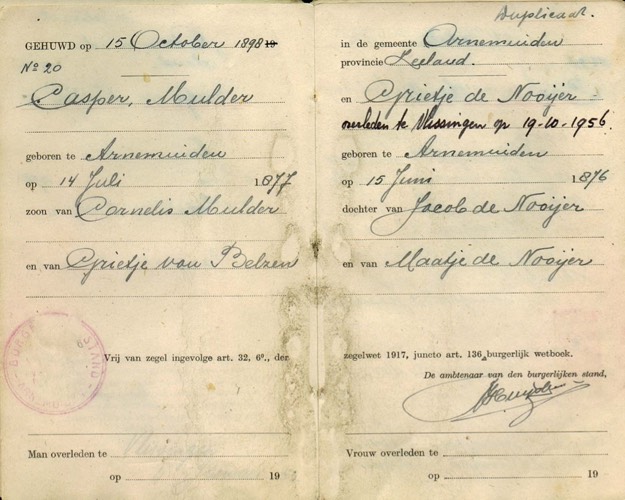 Duplicaat.
GEHUWD op 15 October 1898 19
No 20
Casper, Mulder
geboren te Arnemuiden
op 14 Juli 1877
zoon van Cornelis Mulder
en van Grietje van Belzen
Vrij van zegel ingevolge art. 32, 6°., der
Man overleden te
op 19
in de gemeente Arnemuiden
provincie Zeeland.
en Grietje de Nooijer
overleden te Vlissingen op 19-10-1956.
geboren te Arnemuiden
op 15 Juni 1876
dochter van Jacob de Nooijer
en van Maatje de Nooijer
zegelwet 1917, juncto art. 136 burgerlijk wetboek.
De ambtenaar van den burgerlijken stand,
Vrouw overleden te
op 19